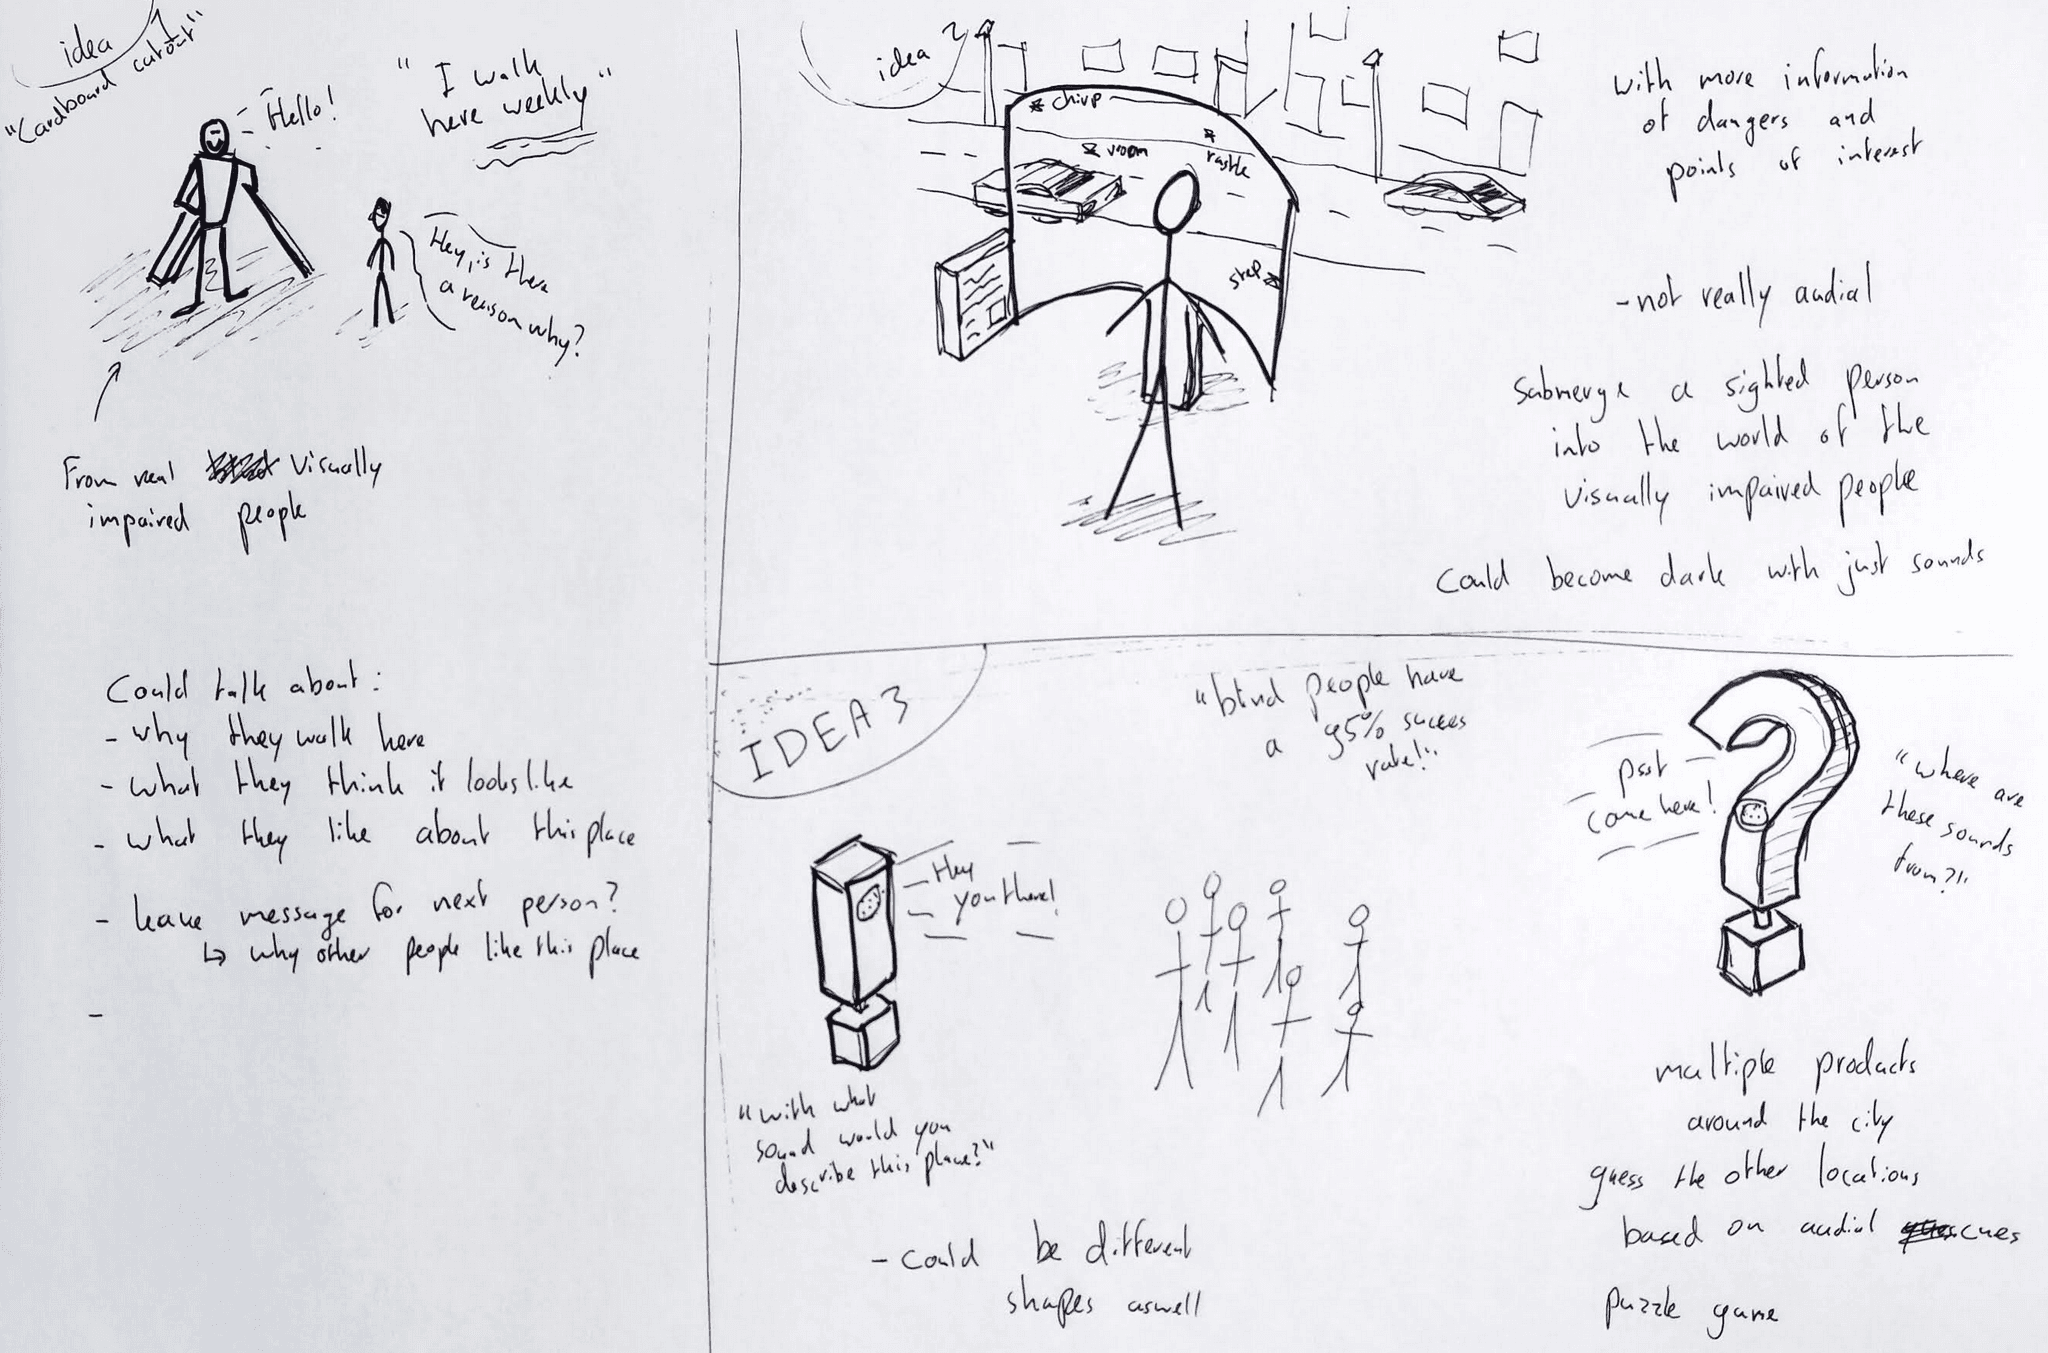 idea 1
"Cardboard cutout"
Hello!
"I walk
here weekly"
Hey, is there
a reason why?
From real visually
impaired people
Could talk about:
- why they walk here
- what they think it looks like
- what they like about this place
- leave message for next person?
↳ why other people like this place
-
idea 2
chirp
vroom
rustle
step
with more information
of dangers and
points of interest
- not really audial
Submerge a sighted person
into the world of the
visually impaired people
Could become dark with just sounds
IDEA 3
"blind people have
a 95% succes
rate!"
Hey
you there!
"with what
sound would you
describe this place?"
- Could be different
shapes aswell
psst
come here!
"where are
these sounds
from?!"
multiple products
around the city
guess the other locations
based on audial cues
puzzle game